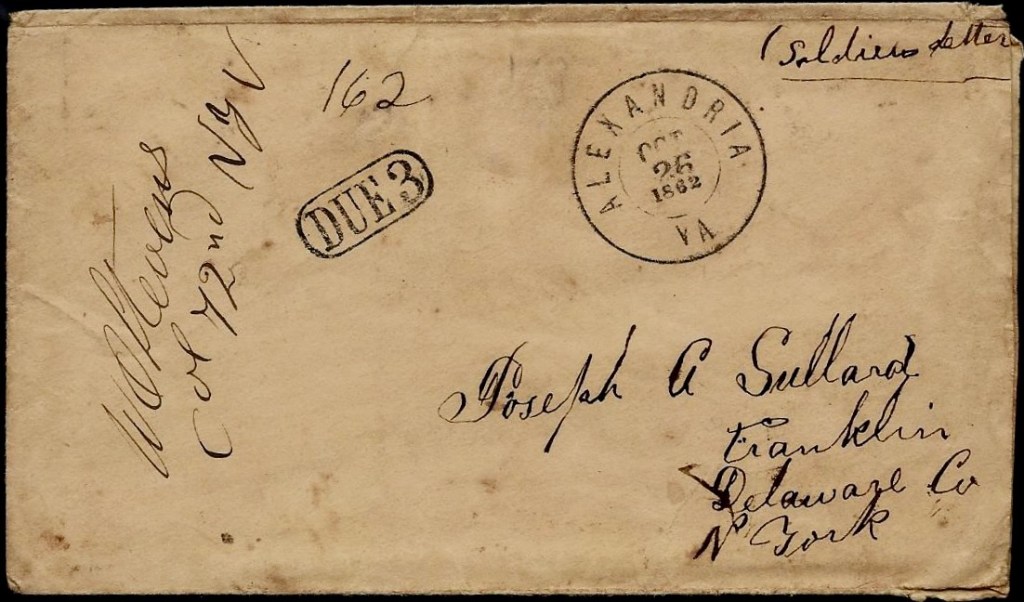 (Soldiers Letter
162
DUE 3
ALEXANDRIA
OCT
26
1862
VA
Stevens
Col 72nd NYV
Joseph A Sullard
Franklin
Delaware Co
N York